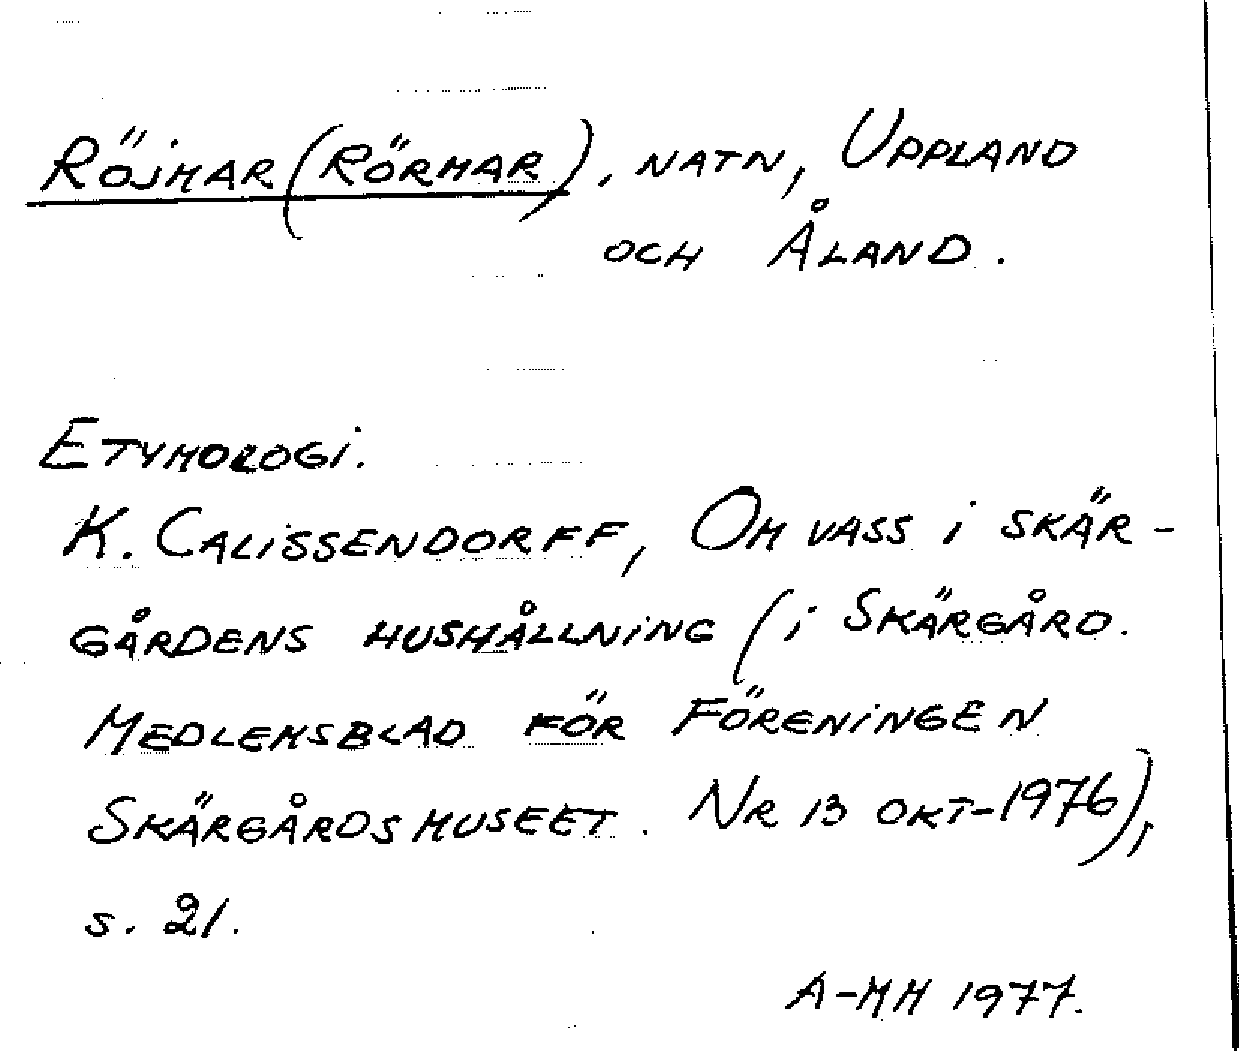 Röjmar (Rörmar), natn, Uppland
och Åland.
Etymologi.
K. Calissendorff, Om vass i skär-
gårdens hushållning (i Skärgård.
Medlemsblad för Föreningen
Skärgårdsmuseet. Nr 13 okt-1976),
s. 21.
A-MH 1977.